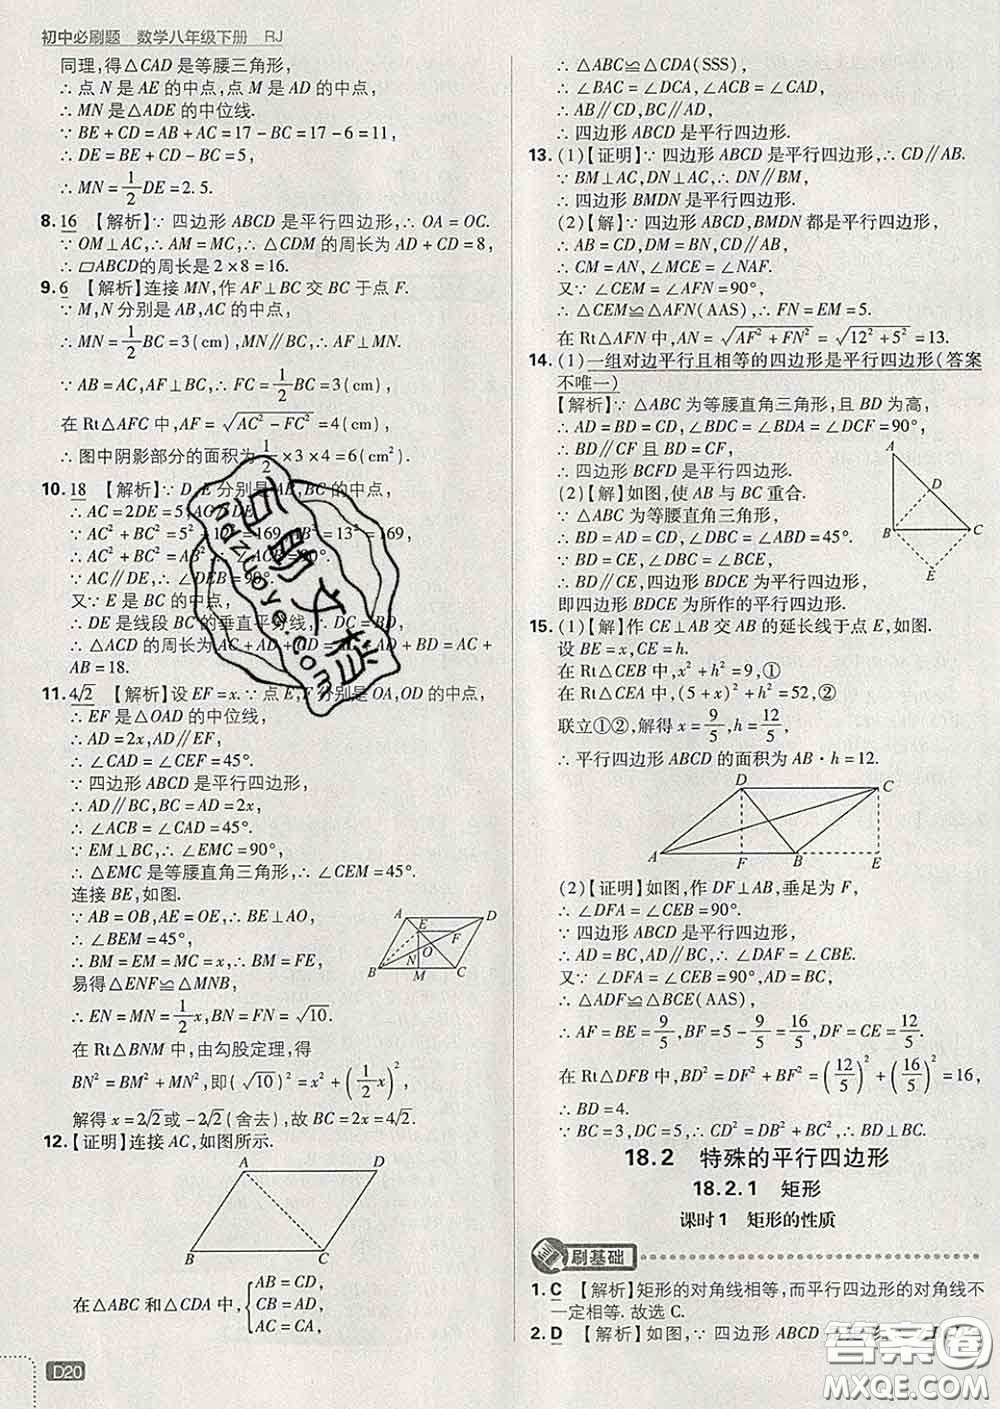 初中必刷题 数学八年级下册 RJ
同理,得△CAD是等腰三角形,
∴点N是AE的中点,点M是AD的中点,
∴MN是△ADE的中位线.
∵BE+CD=AB+AC=17-BC=17-6=11,
∴DE=BE+CD-BC=5,
∴MN=1/2DE=2.5.
8.16 【解析】∵四边形ABCD是平行四边形,∴OA=OC.
∵OM⊥AC,∴AM=MC,∴△CDM的周长为AD+CD=8,
∴▱ABCD的周长是2×8=16.
9.6 【解析】连接MN,作AF⊥BC交BC于点F.
∵M,N分别是AB,AC的中点,
∴MN=1/2BC=3(cm),MN∥BC.
∵AB=AC,AF⊥BC,∴FC=1/2BC=3(cm),
在Rt△AFC中,AF=√(AC²-FC²)=4(cm),
∴图中阴影部分的面积为1/2×3×4=6(cm²).
10.18 【解析】∵D,E分别是AB,BC的中点,
∴AC=2DE=5,AC∥DE.
∵AC²+BC²=5²+12²=169,AB²=13²=169,
∴AC²+BC²=AB²,∴∠ACB=90°.
∵AC∥DE,∴∠DEB=90°.
又∵E是BC的中点,
∴DE是线段BC的垂直平分线,∴DC=BD,
∴△ACD的周长为AC+AD+CD=AC+AD+BD=AC+
AB=18.
11.4√2 【解析】设EF=x.∵点E,F分别是OA,OD的中点,
∴EF是△OAD的中位线,
∴AD=2x,AD∥EF,
∴∠CAD=∠CEF=45°.
∵四边形ABCD是平行四边形,
∴AD∥BC,BC=AD=2x,
∴∠ACB=∠CAD=45°.
∵EM⊥BC,∴∠EMC=90°,
∴△EMC是等腰直角三角形,∴∠CEM=45°.
连接BE,如图.
∵AB=OB,AE=OE,∴BE⊥AO,
∴∠BEM=45°,
∴BM=EM=MC=x,∴BM=FE.
易得△ENF≌△MNB,
∴EN=MN=1/2x,BN=FN=√10.
在Rt△BNM中,由勾股定理,得
BN²=BM²+MN²,即(√10)²=x²+(1/2x)²,
解得x=2√2或-2√2(舍去),故BC=2x=4√2.
A D E F O N B M C
12.【证明】连接AC,如图所示.
A D
B C
在△ABC和△CDA中,{AB=CD,
CB=AD,
AC=CA,
D20
∴△ABC≌△CDA(SSS),
∴∠BAC=∠DCA,∠ACB=∠CAD,
∴AB∥CD,BC∥AD,
∴四边形ABCD是平行四边形.
13.(1)【证明】∵四边形ABCD是平行四边形,∴CD∥AB.
∵BM⊥AC,DN⊥AC,∴DN∥BM,
∴四边形BMDN是平行四边形.
(2)【解】∵四边形ABCD,BMDN都是平行四边形,
∴AB=CD,DM=BN,CD∥AB,
∴CM=AN,∠MCE=∠NAF.
又∵∠CEM=∠AFN=90°,
∴△CEM≌△AFN(AAS),∴FN=EM=5.
在Rt△AFN中,AN=√(AF²+FN²)=√(12²+5²)=13.
14.(1)一组对边平行且相等的四边形是平行四边形(答案
不唯一)
【解析】∵△ABC为等腰直角三角形,且BD为高,
∴AD=BD=CD,∠BDC=∠BDA=∠DCF=90°,
∴BD∥CF且BD=CF,
∴四边形BCFD是平行四边形.
(2)【解】如图,使AB与BC重合.
∵△ABC为等腰直角三角形,
∴BD=AD=CD,∠DBC=∠ABD=45°.
∵BD=CE,∠DBC=∠BCE=45°,
∴BD∥CE,四边形BDCE为平行四边形,
即四边形BDCE为所作的平行四边形.
A D B C E
15.(1)【解】作CE⊥AB交AB的延长线于点E,如图.
设BE=x,CE=h.
在Rt△CEB中,x²+h²=9,①
在Rt△CEA中,(5+x)²+h²=52,②
联立①②,解得x=9/5,h=12/5,
∴平行四边形ABCD的面积为AB·h=12.
D C
A F B E
(2)【证明】如图,作DF⊥AB,垂足为F,
∴∠DFA=∠CEB=90°.
∵四边形ABCD是平行四边形,
∴AD=BC,AD∥BC,∴∠DAF=∠CBE.
又∵∠DFA=∠CEB=90°,
∴△ADF≌△BCE(AAS),
∴AF=BE=9/5,BF=5-9/5=16/5,DF=CE=12/5.
在Rt△DFB中,BD²=DF²+BF²=(12/5)²+(16/5)²=16,
∴BD=4.
∵BC=3,DC=5,∴CD²=DB²+BC²,∴BD⊥BC.
18.2 特殊的平行四边形
18.2.1 矩形
课时1 矩形的性质
刷基础
1.C 【解析】矩形的对角线相等,而平行四边形的对角线不
一定相等.故选C.
2.D 【解析】如图,∵四边形ABCD
答案圈
MXQE.COM